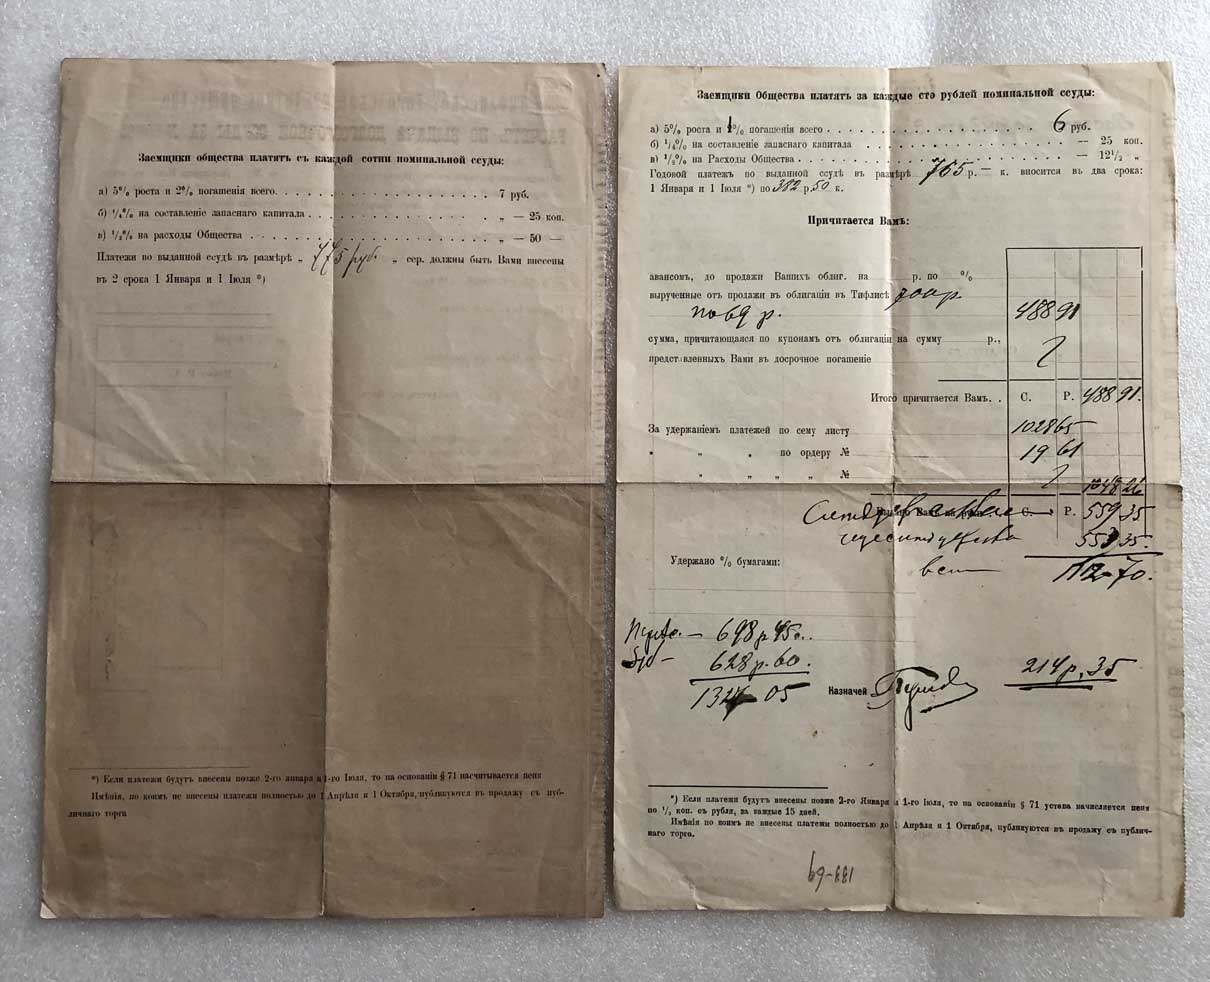 Заемщики общества платятъ съ каждой сотни номинальной ссуды:
а) 5% роста и 2% погашенія всего 7 руб.
б) ¼% на составленіе запаснаго капитала „ — 25 коп.
в) ½% на расходы Общества „ — 50 —
Платежи по выданной ссудѣ въ размѣрѣ „ 775 руб. „ сер. должны быть Вами внесены
въ 2 срока 1 Января и 1 Іюля *)
*) Если платежи будутъ внесены позже 2-го января и 1-го Іюля, то на основаніи § 71 насчитывается пеня
Имѣнія, по коимъ не внесены платежи полностью до 1 Апрѣля и 1 Октября, публикуются въ продажу съ пуб-
личнаго торга
Заемщики Общества платятъ за каждые сто рублей номинальной ссуды:
а) 5% роста и % погашенія всего 6 руб.
б) ¼% на составленіе запаснаго капитала — 25 коп.
в) ⅛% на Расходы Общества — 12½ „
Годовой платежъ по выданной ссудѣ въ размѣрѣ 765 р. — к. вносится въ два срока:
1 Января и 1 Іюля *) по 382 р. 50 к.
Причитается Вамъ:
авансомъ, до продажи Вашихъ облиг. на р. по %
вырученные отъ продажи въ облигаціи въ Тифлисѣ 700 р.
по 69 р. 488 91
сумма, причитающаяся по купонамъ отъ облигаціи на сумму р.,
представленныхъ Вами въ досрочное погашеніе
Итого причитается Вамъ. . С. Р. 488 91.
За удержаніемъ платежей по сему листу 1028 65
„ „ „ по ордеру № 19 61
„ „ „ „ № 1048 26
С. Р. 559 35
553 35.
Удержано % бумагами: 1112-70.
698 р 45
628 р. 60.
05 Казначей 214 р. 35
*) Если платежи будутъ внесены позже 2-го Января и 1-го Іюля, то на основаніи § 71 устава начисляется пеня
по ½ коп. съ рубля, за каждые 15 дней.
Имѣнія по коимъ не внесены платежи полностью до 1 Апрѣля и 1 Октября, публикуются въ продажу съ публич-
наго торга.